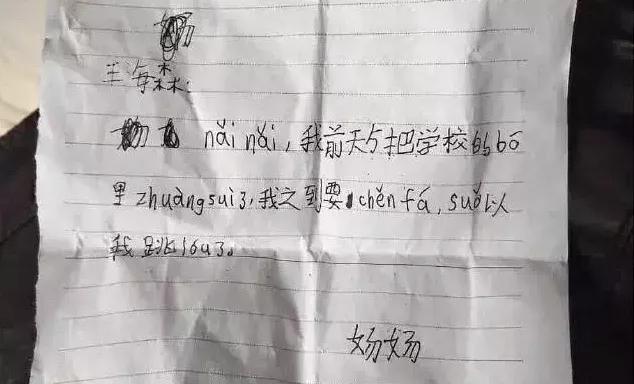 王海森:
nǎi nǎi,我前天把学校的bō
里zhuàngsui了,我之到要chěn fá,suǒ以
我跳lóu了。